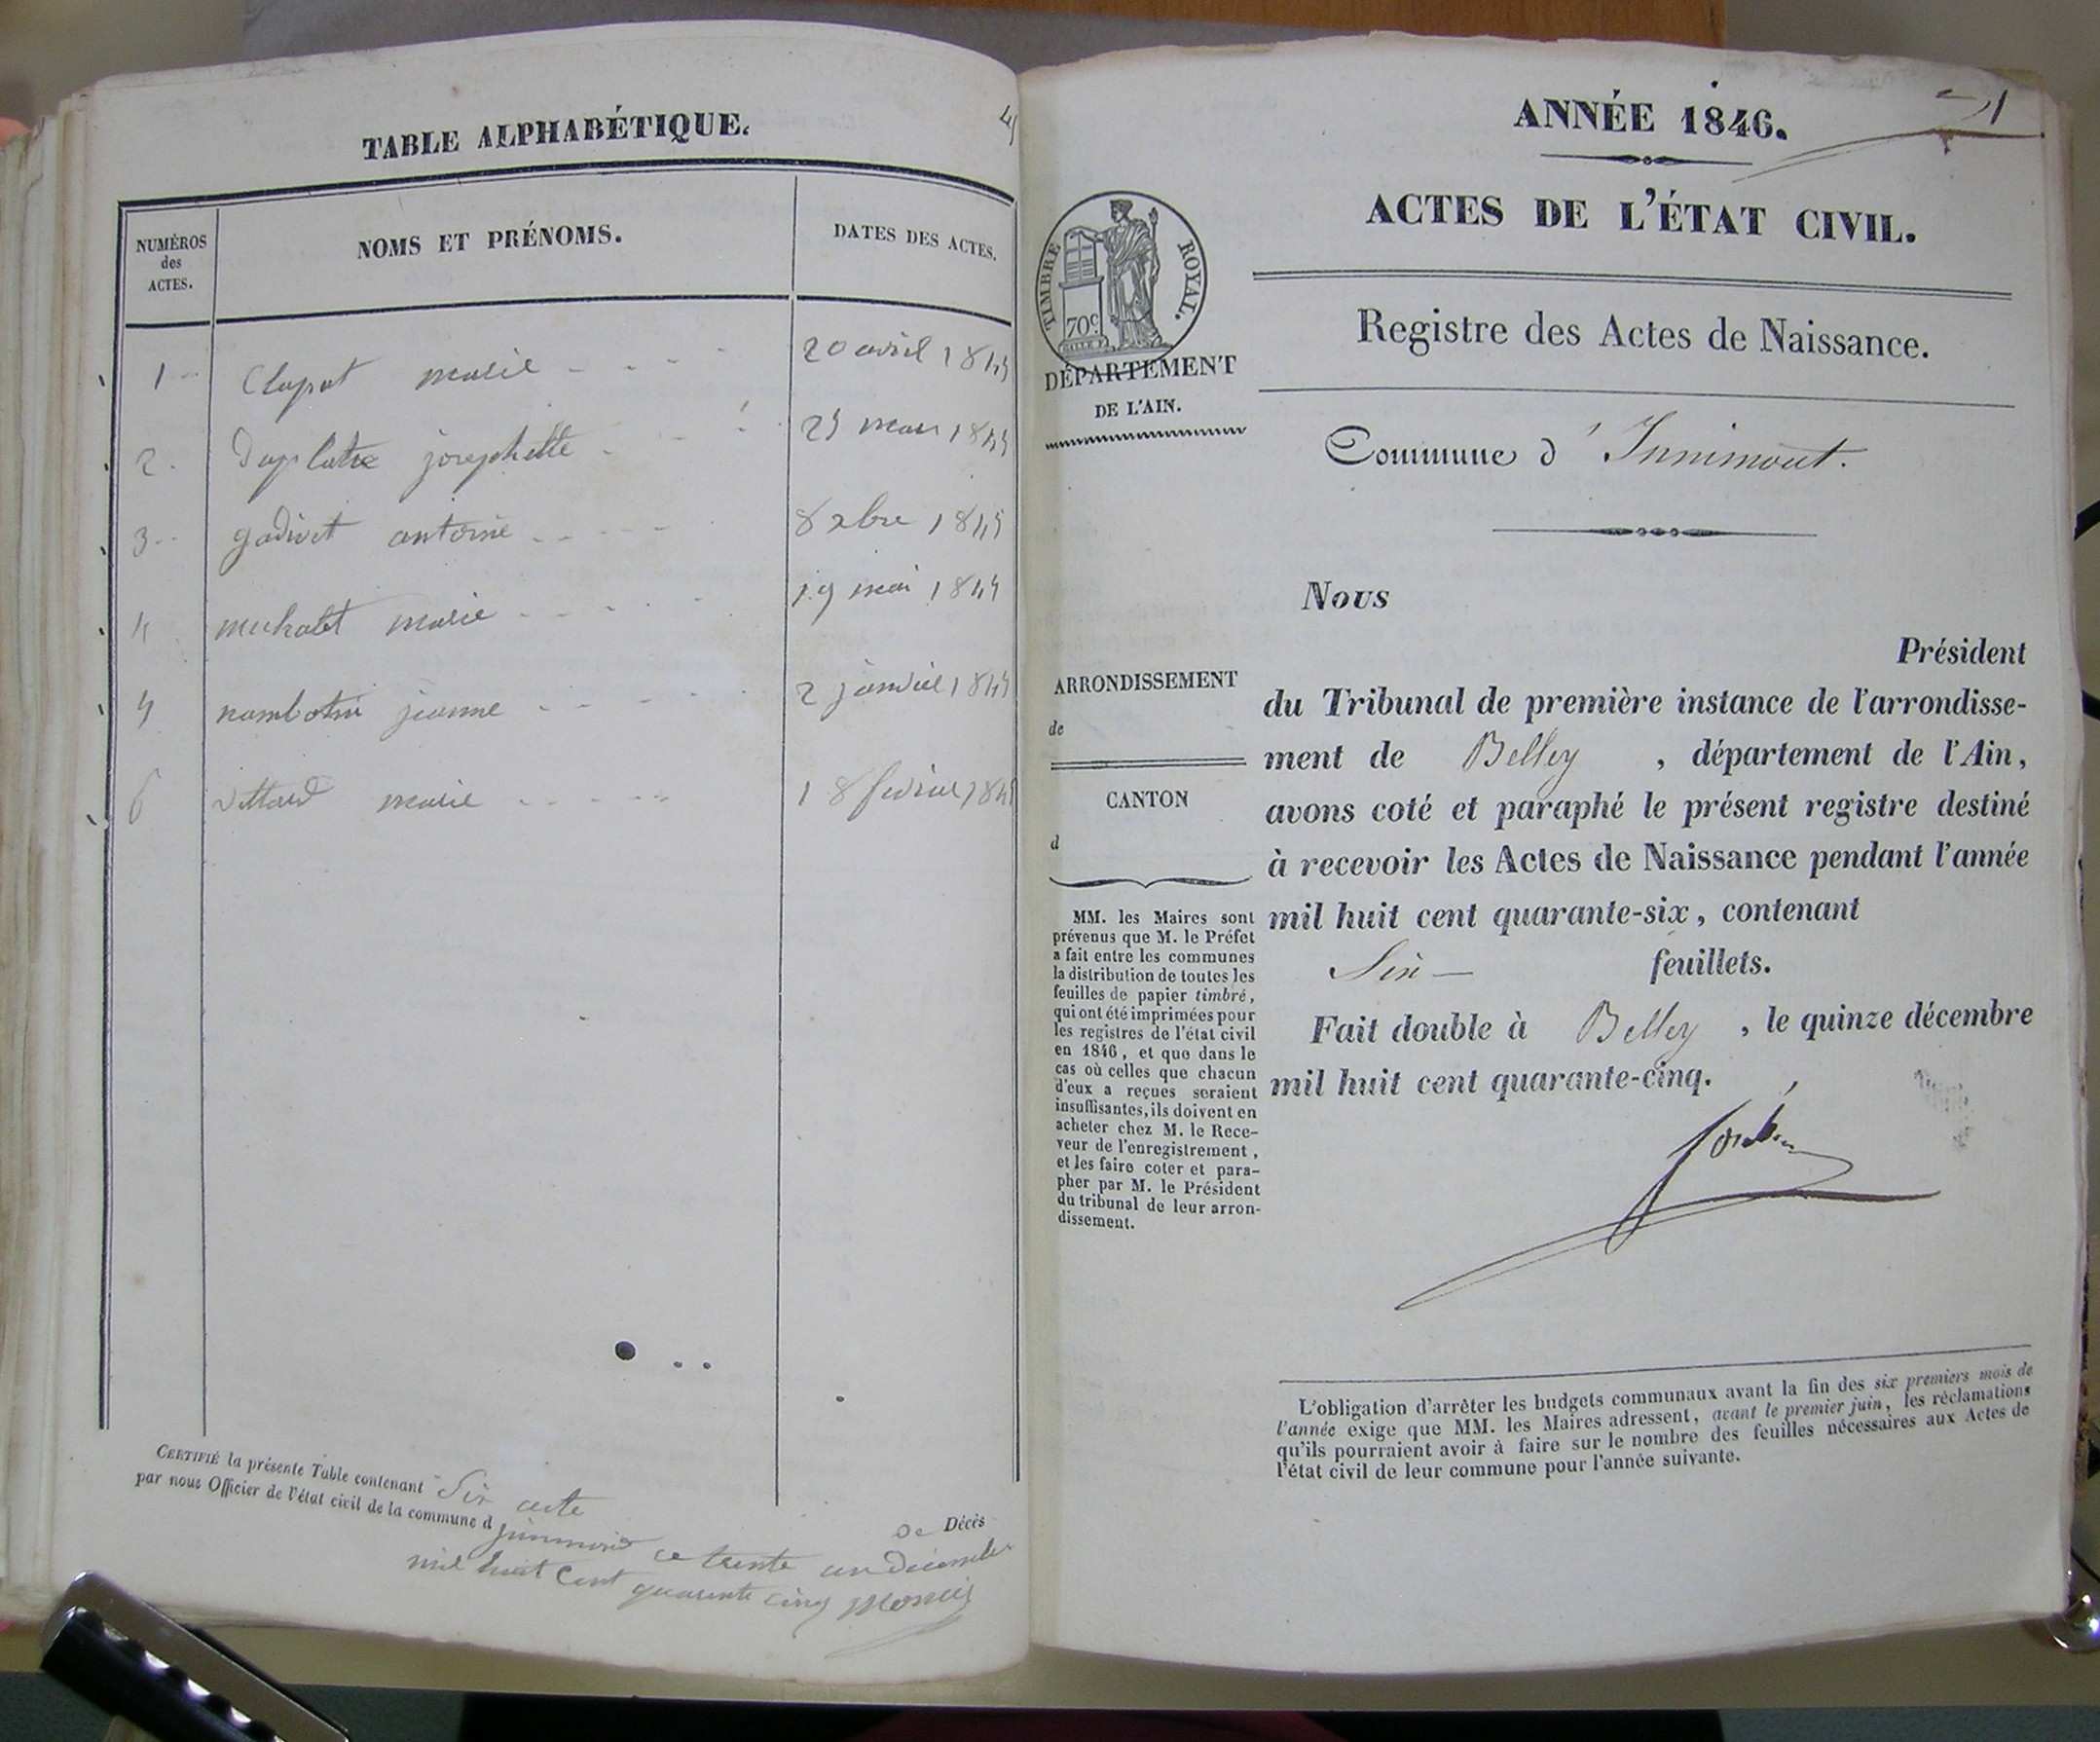 TABLE ALPHABÉTIQUE.
NUMÉROS
des
ACTES.
NOMS ET PRÉNOMS.
DATES DES ACTES.
1 Clapat marie 20 avril 1845
2. Duplatre josephette 25 mars 1845
3 gadivet antoine 8 xbre 1845
4 michalet marie 19 mai 1845
5 jeanne 2 janvier 1845
6 vittard marie 18 fevrier 1845
CERTIFIÉ la présente Table contenant Six acte de Décès
par nous Officier de l'état civil de la commune d ce trente un Décembre
mil huit Cent quarante cinq
1
ANNÉE 1846.
ACTES DE L'ÉTAT CIVIL.
TIMBRE ROYAL.
70c
DÉPARTEMENT
DE L'AIN.
Registre des Actes de Naissance.
Commune d' Innimont.
Nous
Président
du Tribunal de première instance de l'arrondisse-
ment de Belley , département de l'Ain,
avons coté et paraphé le présent registre destiné
à recevoir les Actes de Naissance pendant l'année
mil huit cent quarante-six, contenant
Six feuillets.
Fait double à Belley , le quinze décembre
mil huit cent quarante-cinq.
ARRONDISSEMENT
de
CANTON
d
MM. les Maires sont
prévenus que M. le Préfet
a fait entre les communes
la distribution de toutes les
feuilles de papier timbré,
qui ont été imprimées pour
les registres de l'état civil
en 1846, et que dans le
cas où celles que chacun
d'eux a reçues seraient
insuffisantes, ils doivent en
acheter chez M. le Rece-
veur de l'enregistrement,
et les faire coter et para-
pher par M. le Président
du tribunal de leur arron-
dissement.
L'obligation d'arrêter les budgets communaux avant la fin des six premiers mois de
l'année exige que MM. les Maires adressent, avant le premier juin, les réclamations
qu'ils pourraient avoir à faire sur le nombre des feuilles nécessaires aux Actes de
l'état civil de leur commune pour l'année suivante.